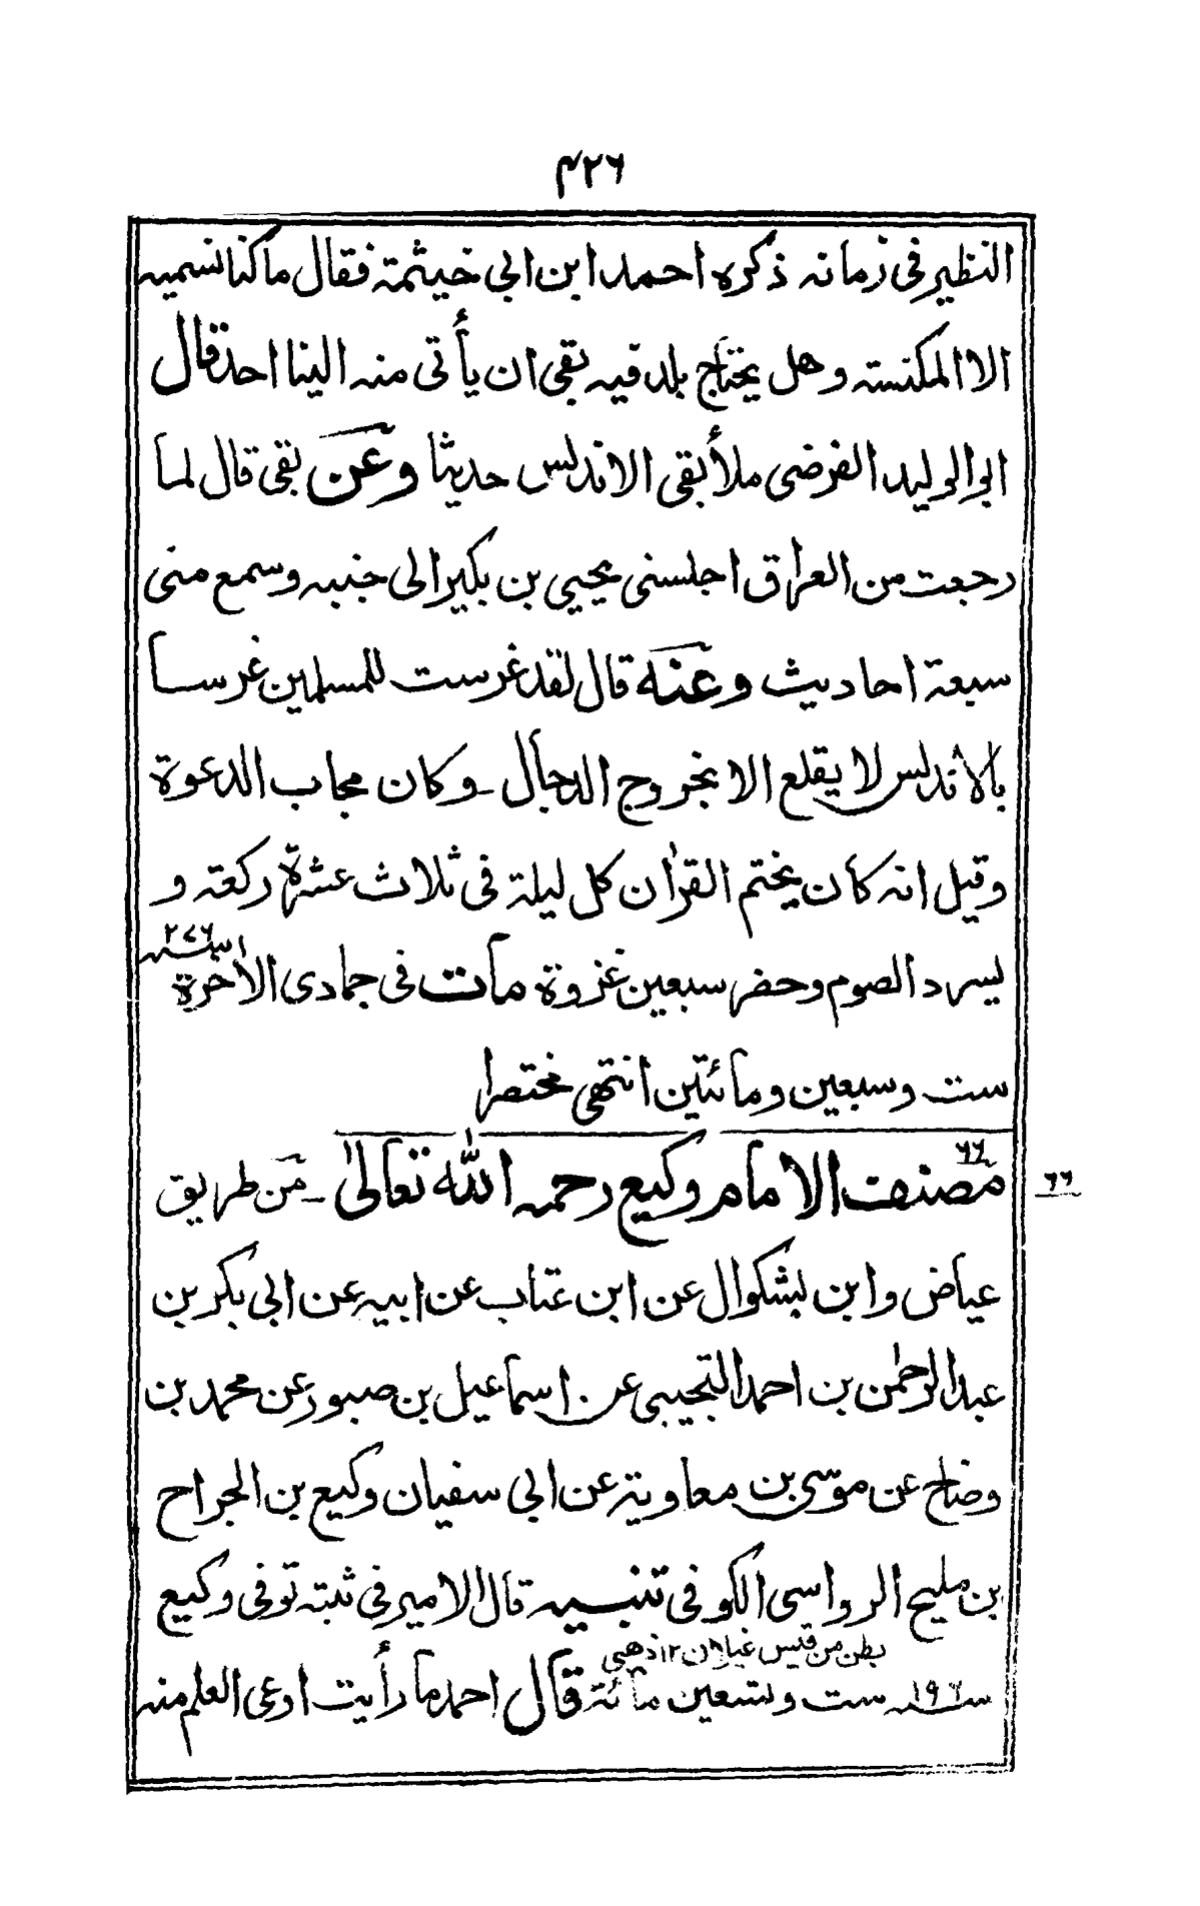 ۴۲۶
النظير فى زمانه ذكره احمد ابن ابى خيثمة فقال ما كنا نسميه
الا المكنسته وهل يحتاج بلد فيه بقى ان يأتى منه الينا احد قال
ابو الوليد الفرضى ملأ بقى الاندلس حديثا وعن بقى قال لما
رجعت من العراق اجلسنى يحيى بن بكير الى جنبه وسمع منى
سبعة احاديث وعنه قال لقد غرست للمسلمين غرسا
بالاندلس لا يقلع الا بخروج الدجال - وكان مجاب الدعوة
وقيل انه كان يختم القرآن كل ليلة فى ثلاث عشرة ركعته و
يسرد الصوم وحضر سبعين غزوة مات فى جمادى الأخرة سنه ۲۷۶
ست وسبعين ومائتين انتهى مختصرا
۶۶
مصنف الامام وكيع رحمه الله تعالىٰ - من طريق
۶۶
عياض وابن بشكوال عن ابن عتاب عن ابيه عن ابى بكر بن
عبد الرحمٰن بن احمد التجيبى عن اسماعيل بن صبور عن محمد بن
وضاح عن موسى بن معاوية عن ابى سفيان وكيع بن الجراح
بن مليح الرواسى الكوفى تنبيه قال الامير فى ثبته توفى وكيع
بطن من قيس غيلان ۱۲ ذهبى
سنه ۱۹۶ ست وتسعين مائة قال احمد ما رأيت اوعى العلم منه